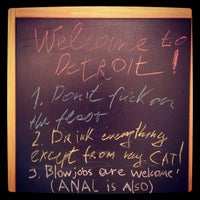 Welcome to
DETROIT!
1. Don't fuck on
the
2. Drink everything,
except from my CAT!
3. Blowjobs are welcome!
(ANAL is ALSO)